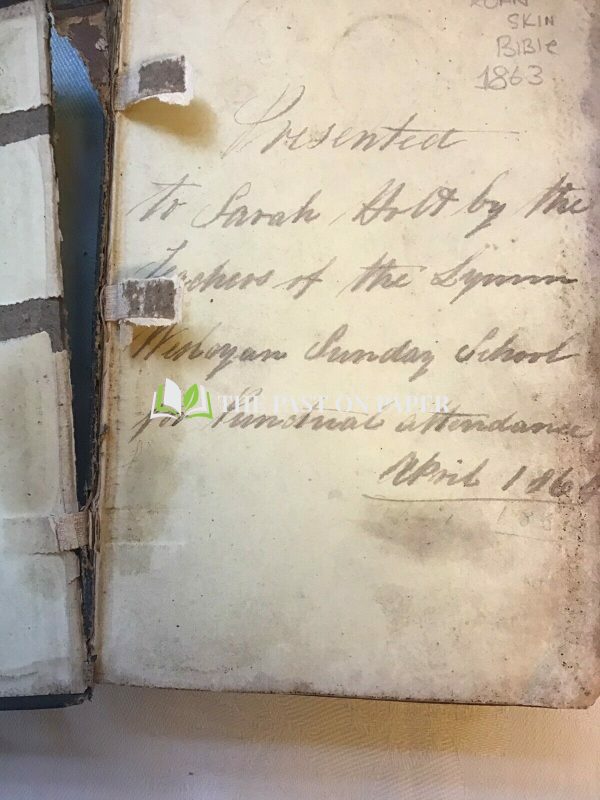 ROAN
SKIN
BIBle
1863
Presented
to Sarah Holt by the
Teachers of the Lymm
Wesleyan Sunday School
THE PAST ON PAPER
for Punctual attendance
April